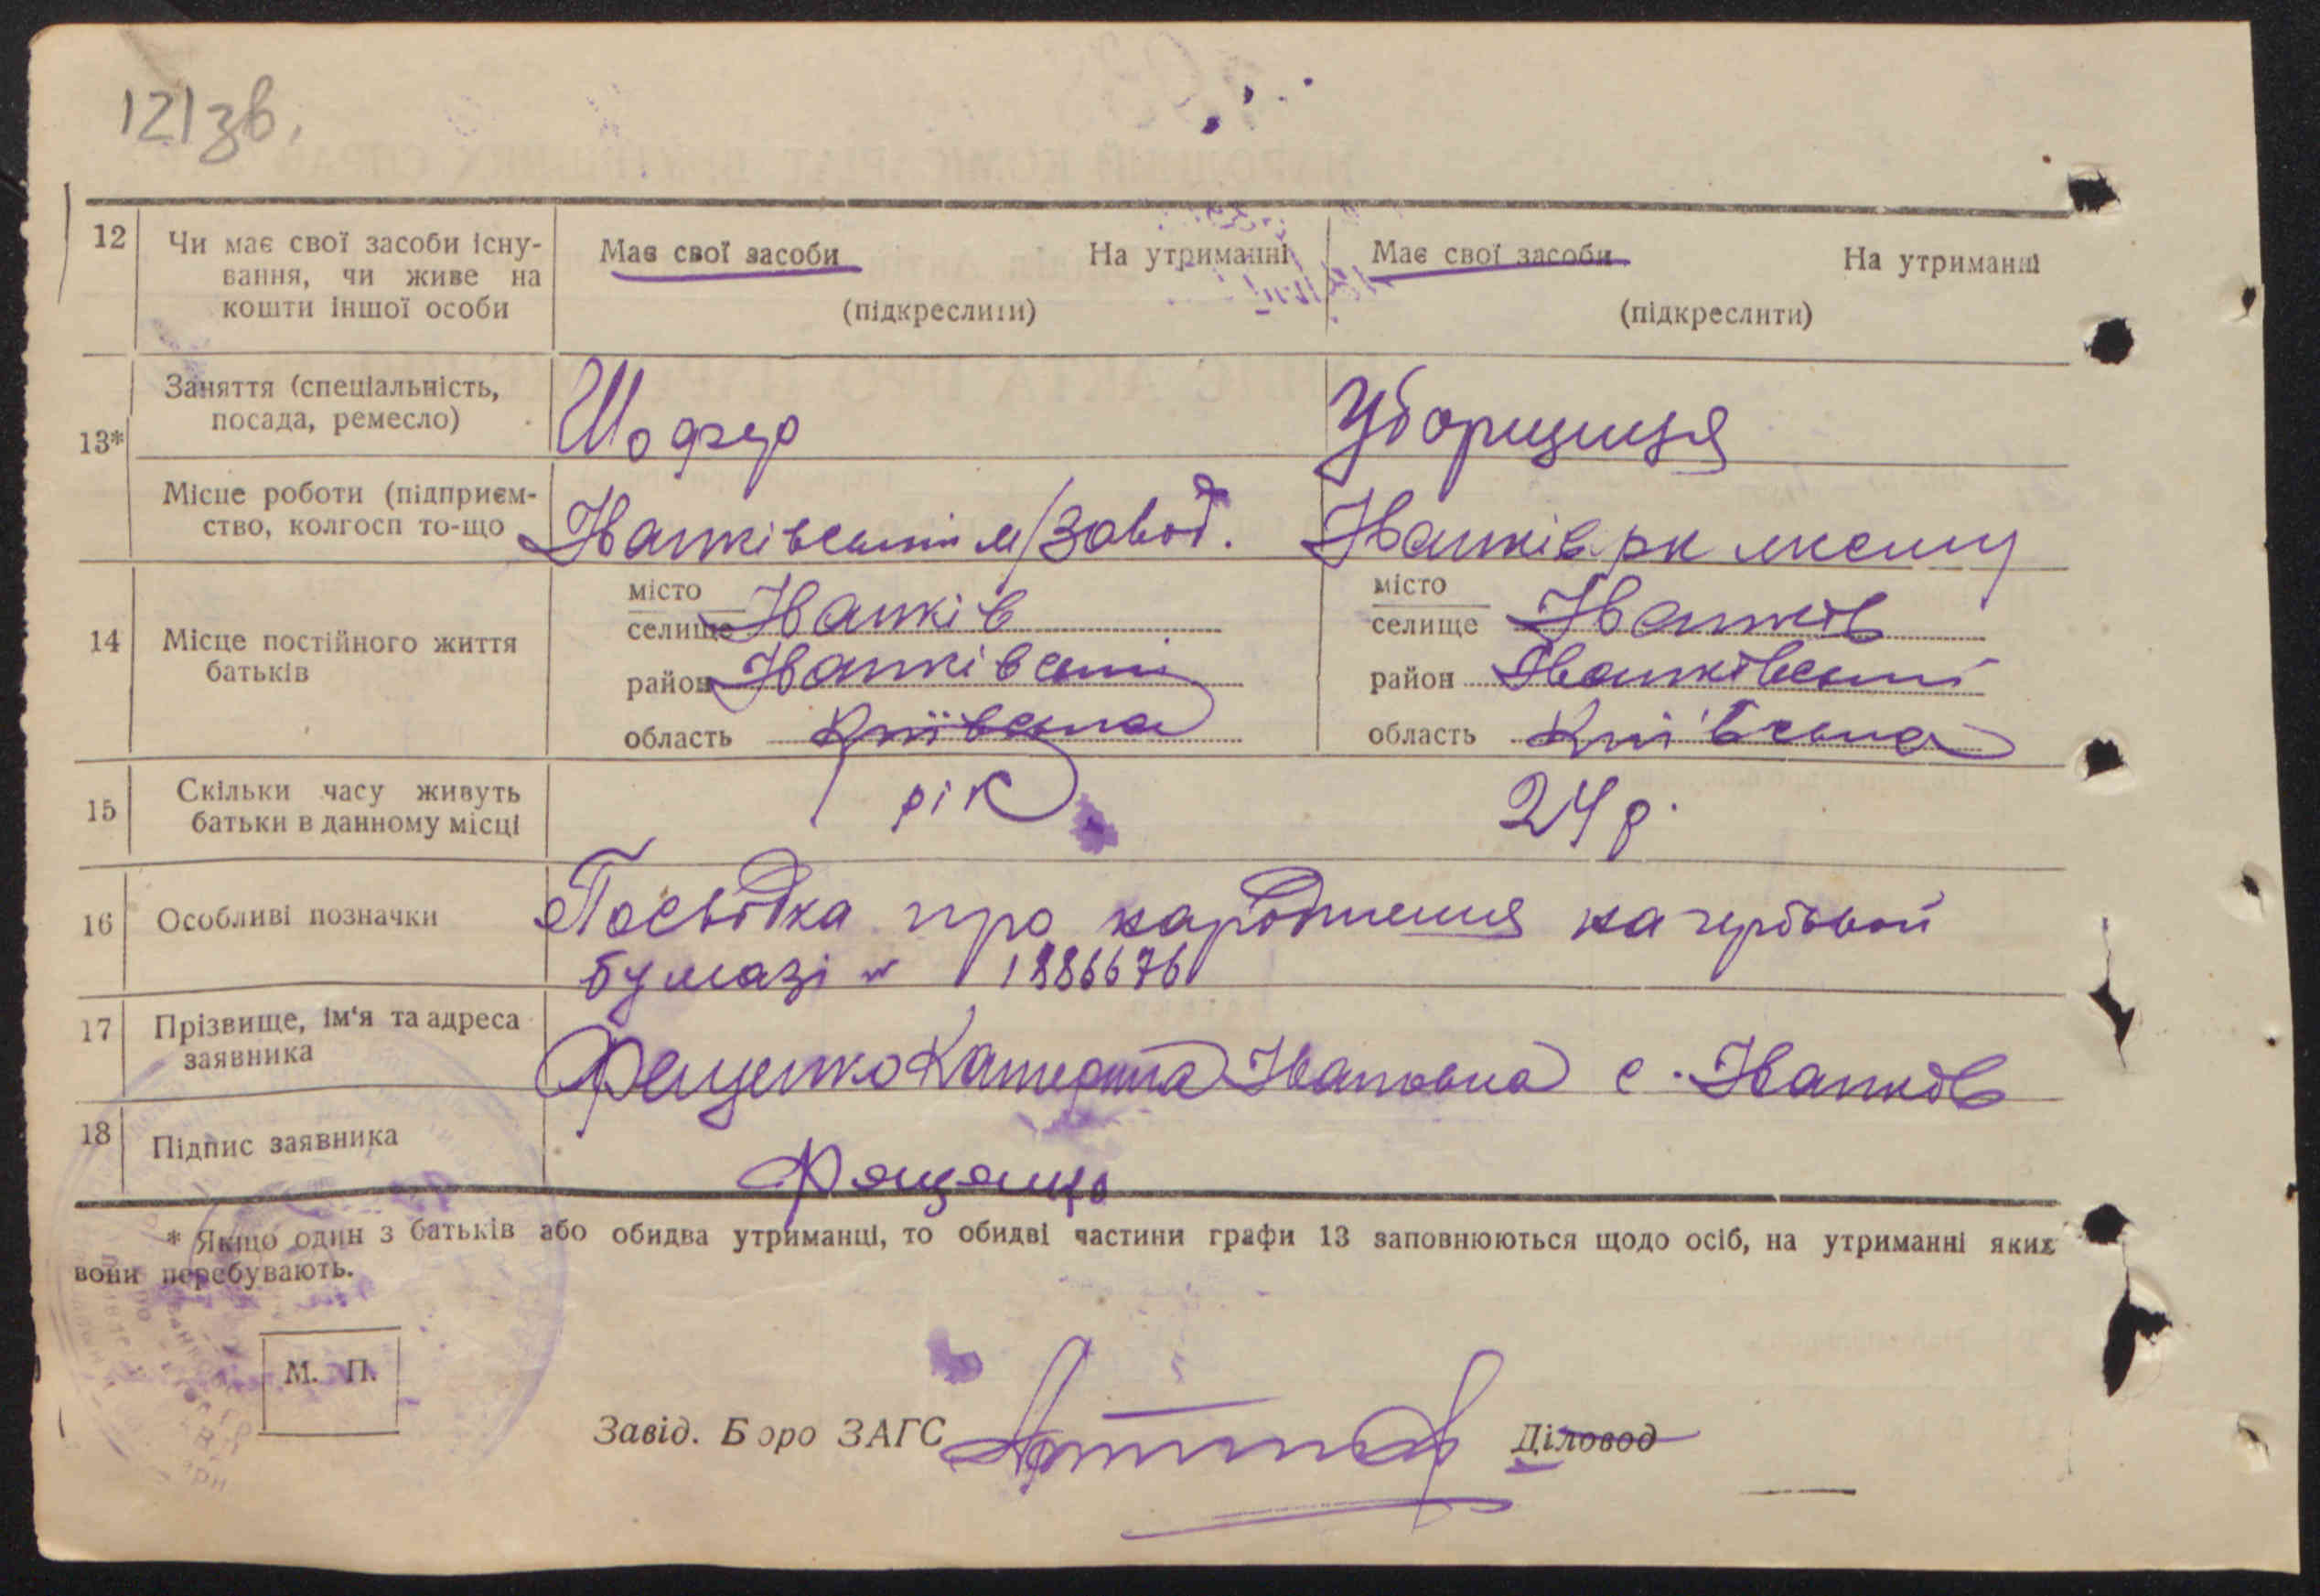 121зв.
12 Чи має свої засоби існу-
вання, чи живе на
кошти іншої особи
Має свої засоби На утриманні
(підкреслити)
Має свої засоби На утриманні
(підкреслити)
13*
Заняття (спеціальність,
посада, ремесло)
Шофер
Уборщиця
Місце роботи (підприєм-
ство, колгосп то-що
Іванківський м/завод.
Іванків рк
14 Місце постійного життя
батьків
місто
селище Іванків
район Іванківський
область Київська
місто
селище Іванків
район Іванківський
область Київська
15 Скільки часу живуть
батьки в данному місці
рік
24 р.
16 Особливі позначки
Посвідка про народження на гербовой
бумазі № 1886676
17 Прізвище, ім'я та адреса
заявника
Фещенко Катерина Івановна с. Іванків
18 Підпис заявника
* Якщо один з батьків або обидва утриманці, то обидві частини графи 13 заповнюються щодо осіб, на утриманні яких
вони перебувають.
М. П.
Завід. Бюро ЗАГС
Діловод